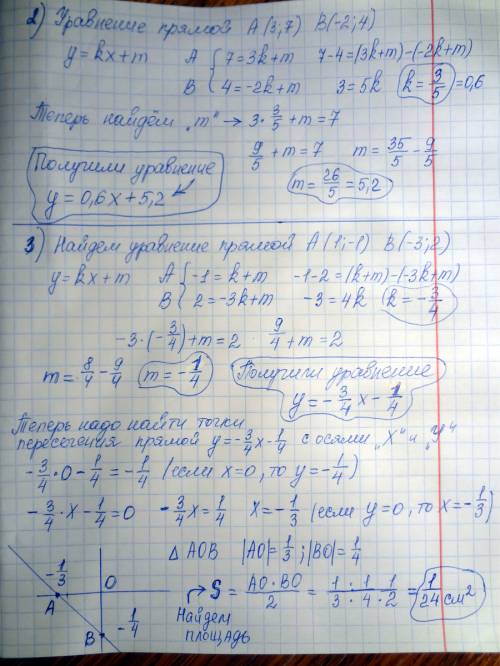 2) Уравнение прямой A(3;7) B(-2;4)
y=kx+m A { 7=3k+m 7-4=(3k+m)-(-2k+m)
B { 4=-2k+m 3=5k k=3/5=0,6
Теперь найдём „m" → 3·3/5+m=7
9/5+m=7 m=35/5-9/5
Получили уравнение
y=0,6x+5,2
m=26/5=5,2
3) Найдем уравнение прямой A(1;-1) B(-3;2)
y=kx+m A { -1=k+m -1-2=(k+m)-(-3k+m)
B { 2=-3k+m -3=4k k=-3/4
-3·(-3/4)+m=2 9/4+m=2
m=8/4-9/4 m=-1/4 Получили уравнение
y=-3/4x-1/4
Теперь надо найти точки
пересечения прямой y=-3/4x-1/4 с осями „X" и „У"
-3/4·0-1/4=-1/4 (если x=0, то y=-1/4)
-3/4·x-1/4=0 -3/4x=1/4 x=-1/3 (если y=0, то x=-1/3)
△ AOB |AO|=1/3; |BO|=1/4
-1/3 O
A
S=AO·BO/2=1/3·1/4·1/2=1/24 см²
B -1/4
Найдем
площадь